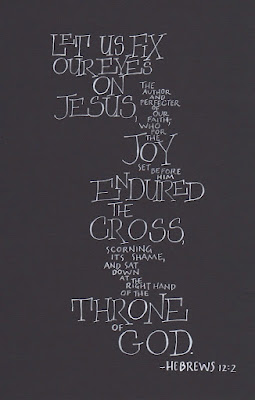 LET US FIX
OUR EYES
ON
JESUS,
THE AUTHOR
AND
PERFECTER
OF
OUR
FAITH,
WHO
FOR
THE
JOY
SET BEFORE
HIM
ENDURED
THE
CROSS,
SCORNING
ITS SHAME,
AND SAT
DOWN
AT THE
RIGHT HAND
OF THE
THRONE
OF
GOD.
-HEBREWS 12:2